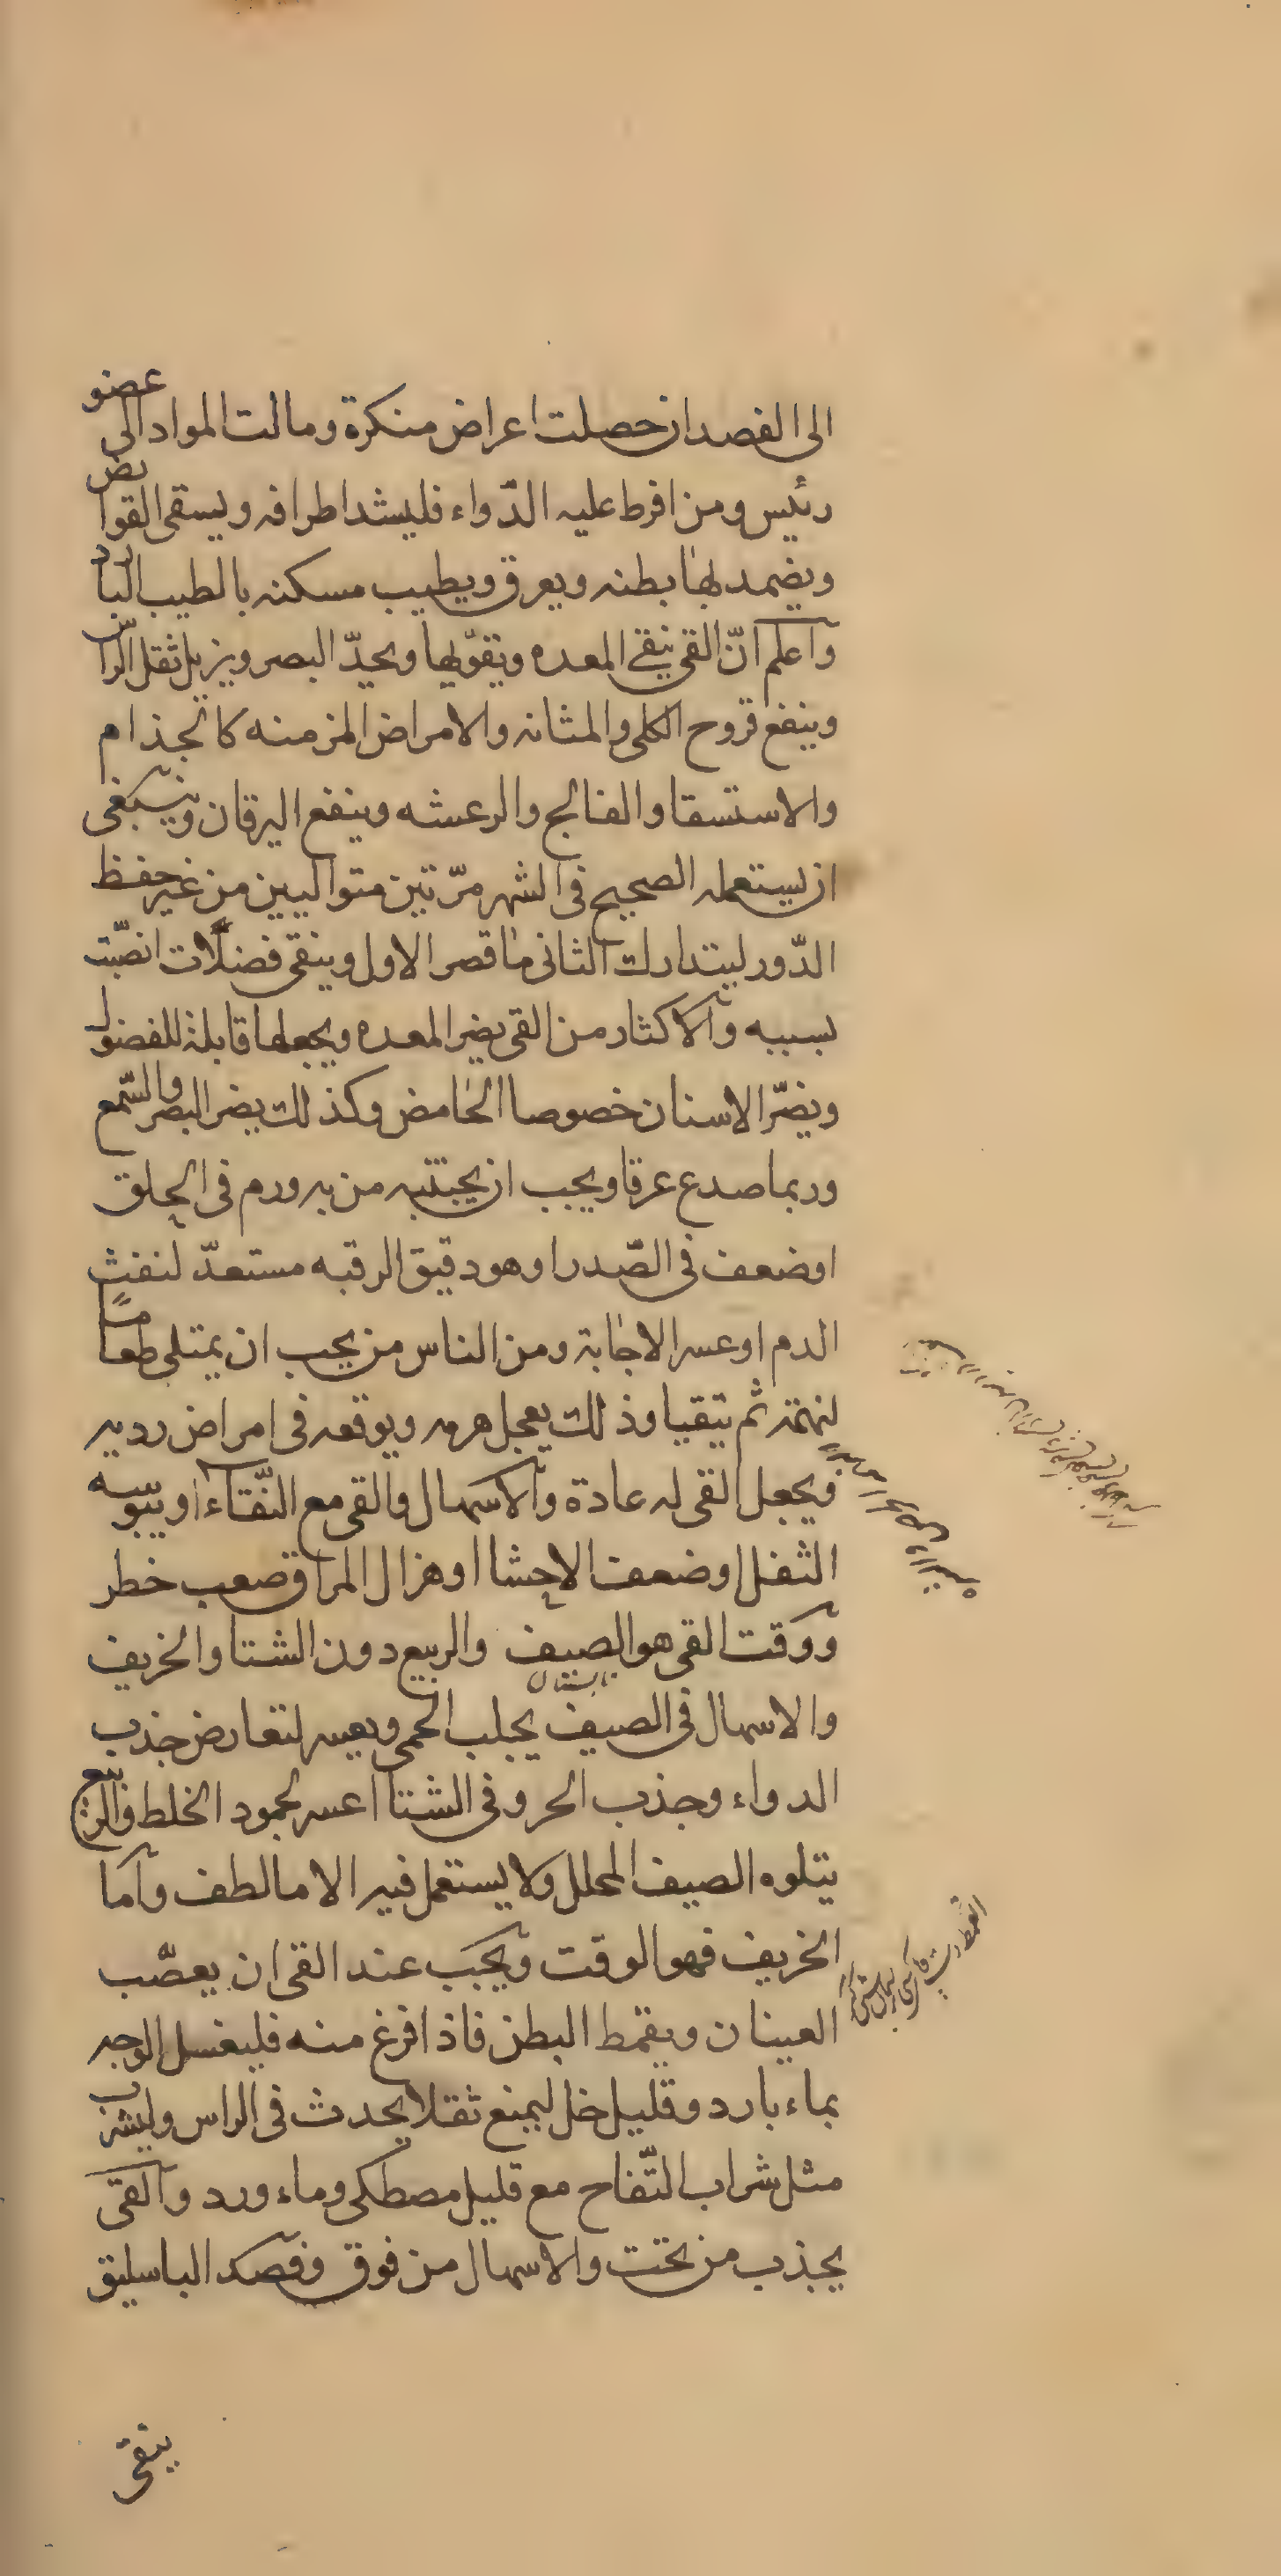 الى الفصد ان حصلت اعراض منكرة ومالت المواد الى عضو
رئيس ومن افرط عليه الدّواء فليشد اطرافه ويسقى القوابض
ويضمد بها بطنه ويعرق ويطيب مسكنه بالطيب البارد
واعلم انّ القى ينقى المعده ويقوّيها ويحدّ البصر ويزيل ثقل الرّاس
وينفع قروح الكلى والمثانه والامراض المزمنه كالجذام
والاستسقا والفالج والرعشه وينفع اليرقان وينبغى
ان يستعمله الصحيح فى الشهر مرّتين متواليين من غير حفظ
الدّور ليتدارك الثانى ما قصر الاول وينقى فضلات انصّبت
بسببه والاكثار من القى يضر المعده ويجعلها قابلة للفضول
ويضرّ الاسنان خصوصا الحامض وكذلك يضر البصر والسّمع
وربما صدع عرقا ويجب ان يجتنبه من به ورم فى الحلق
او ضعف فى الصّدر او هو دقيق الرقبه مستعدّ لنفث
الدم او عسر الاجابة ومن الناس من يحب ان يمتلى طعاماً
لنهمته ثم يتقيا وذلك يعجل هرمه ويوقعه فى امراض رديه
ويجعل القى له عادة والاسهال والقى مع النّقاء او يبوسه
الثفل او ضعف الاحشا او هزال المراق صعب خطر
ووقت القى هو الصيف والربيع دون الشتا والخريف
تابستان
والاسهال فى الصيف يجلب الحمى ويعسر لتعارض جذب
الدواء وجذب الحر وفى الشتا اعسر لجمود الخلط والربيع
يتلوه الصيف المحلل ولا يستعمل فيه الا ما لطف واما
الخريف فهو الوقت ويجب عند القى ان يعصّب
العينان ويقمط البطن فاذا فرغ منه فليغسل الوجه
بماء بارد وقليل خل ليمنع ثقلا يحدث فى الراس وليشرب
مثل شراب التّفاح مع قليل مصطكى وماء ورد والقىّ
يجذب من تحت والاسهال من فوق وفصد الباسليق
ينقى